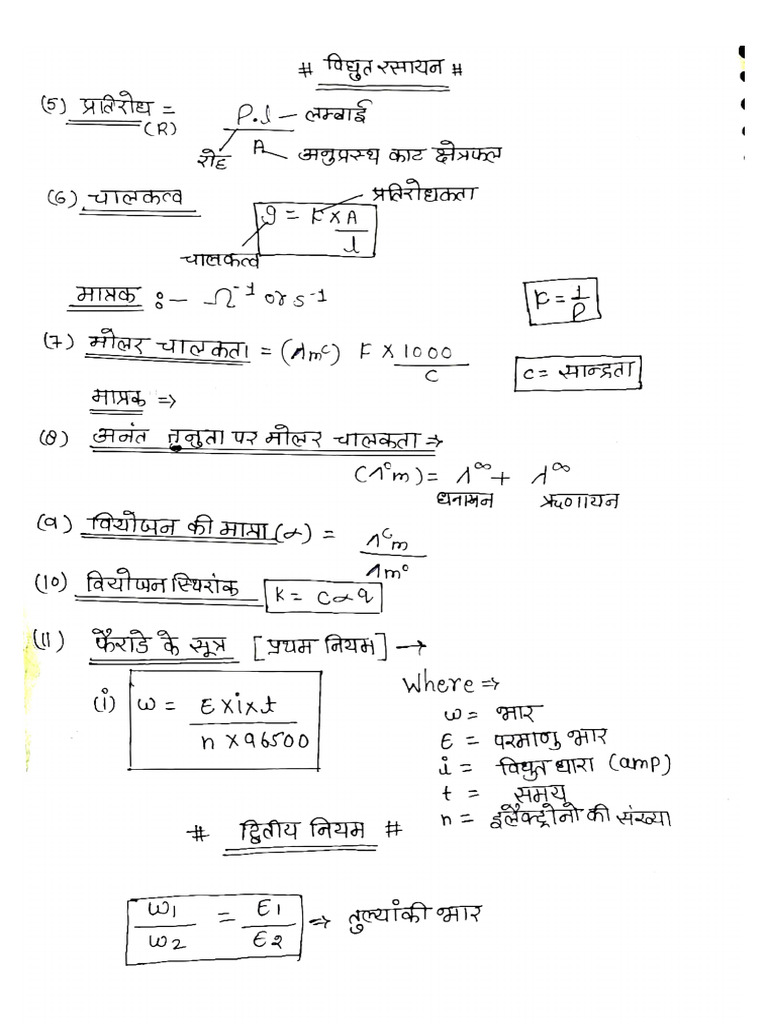 # विद्युत रसायन #
(5) प्रतिरोध = (R) P.l – लम्बाई
रोह A – अनुप्रस्थ काट क्षेत्रफल
(6) चालकत्व G = K × A / l प्रतिरोधकता
चालकत्व
मात्रक :– Ω⁻¹ or s⁻¹ K = 1/P
(7) मोलर चालकता = (Λmᶜ) K × 1000 / C
C = सान्द्रता
मात्रक ⇒
(8) अनंत तनुता पर मोलर चालकता ⇒
(Λ°m) = λ∞ + λ∞
धनायन ऋणायन
(9) वियोजन की मात्रा (α) = Λᶜm / Λm°
(10) वियोजन स्थिरांक K = Cα2
(11) फैराडे के सूत्र [प्रथम नियम] →
(i) W = E×i×t / n×96500
Where ⇒
W = भार
E = परमाणु भार
i = विद्युत धारा (amp)
t = समय
n = इलैक्ट्रोनो की संख्या
# द्वितीय नियम #
W1 / W2 = E1 / E2 ⇒ तुल्यांकी भार